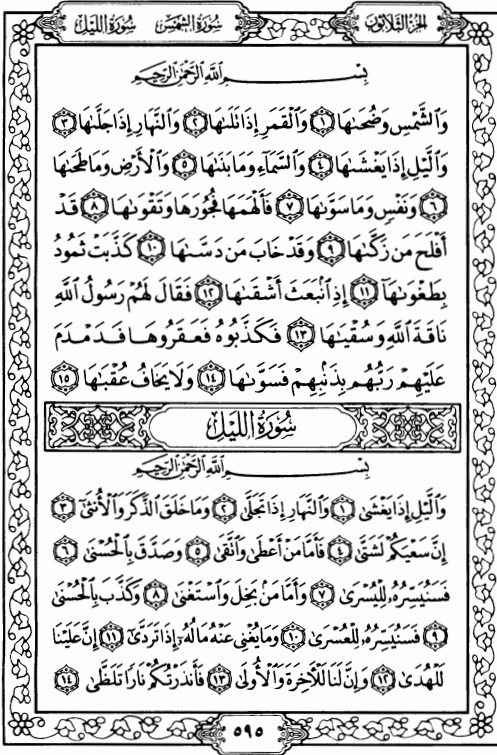 سُورَةُ اللَّيْلِ سُورَةُ الشَّمْسِ الجُزءُ الثَّلَاثُونَ
بِسْمِ اللَّهِ الرَّحْمَٰنِ الرَّحِيمِ
وَالشَّمْسِ وَضُحَىٰهَا ١ وَالْقَمَرِ إِذَا تَلَىٰهَا ٢ وَالنَّهَارِ إِذَا جَلَّىٰهَا ٣
وَالَّيْلِ إِذَا يَغْشَىٰهَا ٤ وَالسَّمَآءِ وَمَا بَنَىٰهَا ٥ وَالْأَرْضِ وَمَا طَحَىٰهَا
٦ وَنَفْسٍ وَمَا سَوَّىٰهَا ٧ فَأَلْهَمَهَا فُجُورَهَا وَتَقْوَىٰهَا ٨ قَدْ
أَفْلَحَ مَن زَكَّىٰهَا ٩ وَقَدْ خَابَ مَن دَسَّىٰهَا ١٠ كَذَّبَتْ ثَمُودُ
بِطَغْوَىٰهَآ ١١ إِذِ انۢبَعَثَ أَشْقَىٰهَا ١٢ فَقَالَ لَهُمْ رَسُولُ اللَّهِ
نَاقَةَ اللَّهِ وَسُقْيَٰهَا ١٣ فَكَذَّبُوهُ فَعَقَرُوهَا فَدَمْدَمَ
عَلَيْهِمْ رَبُّهُم بِذَنۢبِهِمْ فَسَوَّىٰهَا ١٤ وَلَا يَخَافُ عُقْبَٰهَا ١٥
سُورَةُ اللَّيْلِ
بِسْمِ اللَّهِ الرَّحْمَٰنِ الرَّحِيمِ
وَالَّيْلِ إِذَا يَغْشَىٰ ١ وَالنَّهَارِ إِذَا تَجَلَّىٰ ٢ وَمَا خَلَقَ الذَّكَرَ وَالْأُنثَىٰٓ ٣
إِنَّ سَعْيَكُمْ لَشَتَّىٰ ٤ فَأَمَّا مَنْ أَعْطَىٰ وَاتَّقَىٰ ٥ وَصَدَّقَ بِالْحُسْنَىٰ ٦
فَسَنُيَسِّرُهُۥ لِلْيُسْرَىٰ ٧ وَأَمَّا مَنۢ بَخِلَ وَاسْتَغْنَىٰ ٨ وَكَذَّبَ بِالْحُسْنَىٰ
٩ فَسَنُيَسِّرُهُۥ لِلْعُسْرَىٰ ١٠ وَمَا يُغْنِي عَنْهُ مَالُهُۥٓ إِذَا تَرَدَّىٰٓ ١١ إِنَّ عَلَيْنَا
لَلْهُدَىٰ ١٢ وَإِنَّ لَنَا لَلْآخِرَةَ وَالْأُولَىٰ ١٣ فَأَنذَرْتُكُمْ نَارًا تَلَظَّىٰ ١٤
٥٩٥